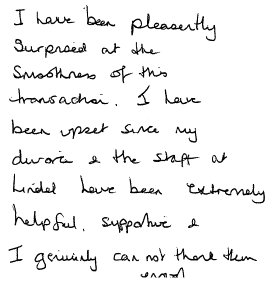 I have been pleasently
surprised at the
smoothness of this
transaction. I have
been upset since my
divorce & the staff at
have been extremely
helpful, supportive &
I genuinly can not thank them
enough